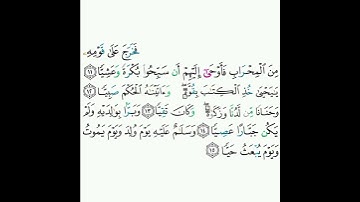 فَخَرَجَ عَلَىٰ قَوْمِهِۦ
مِنَ ٱلْمِحْرَابِ فَأَوْحَىٰٓ إِلَيْهِمْ أَن سَبِّحُوا۟ بُكْرَةً وَعَشِيًّا ١١
يَـٰيَحْيَىٰ خُذِ ٱلْكِتَـٰبَ بِقُوَّةٍ ۖ وَءَاتَيْنَـٰهُ ٱلْحُكْمَ صَبِيًّا ١٢
وَحَنَانًا مِّن لَّدُنَّا وَزَكَوٰةً ۖ وَكَانَ تَقِيًّا ١٣ وَبَرًّۢا بِوَٰلِدَيْهِ وَلَمْ
يَكُن جَبَّارًا عَصِيًّا ١٤ وَسَلَـٰمٌ عَلَيْهِ يَوْمَ وُلِدَ وَيَوْمَ يَمُوتُ
وَيَوْمَ يُبْعَثُ حَيًّا ١٥